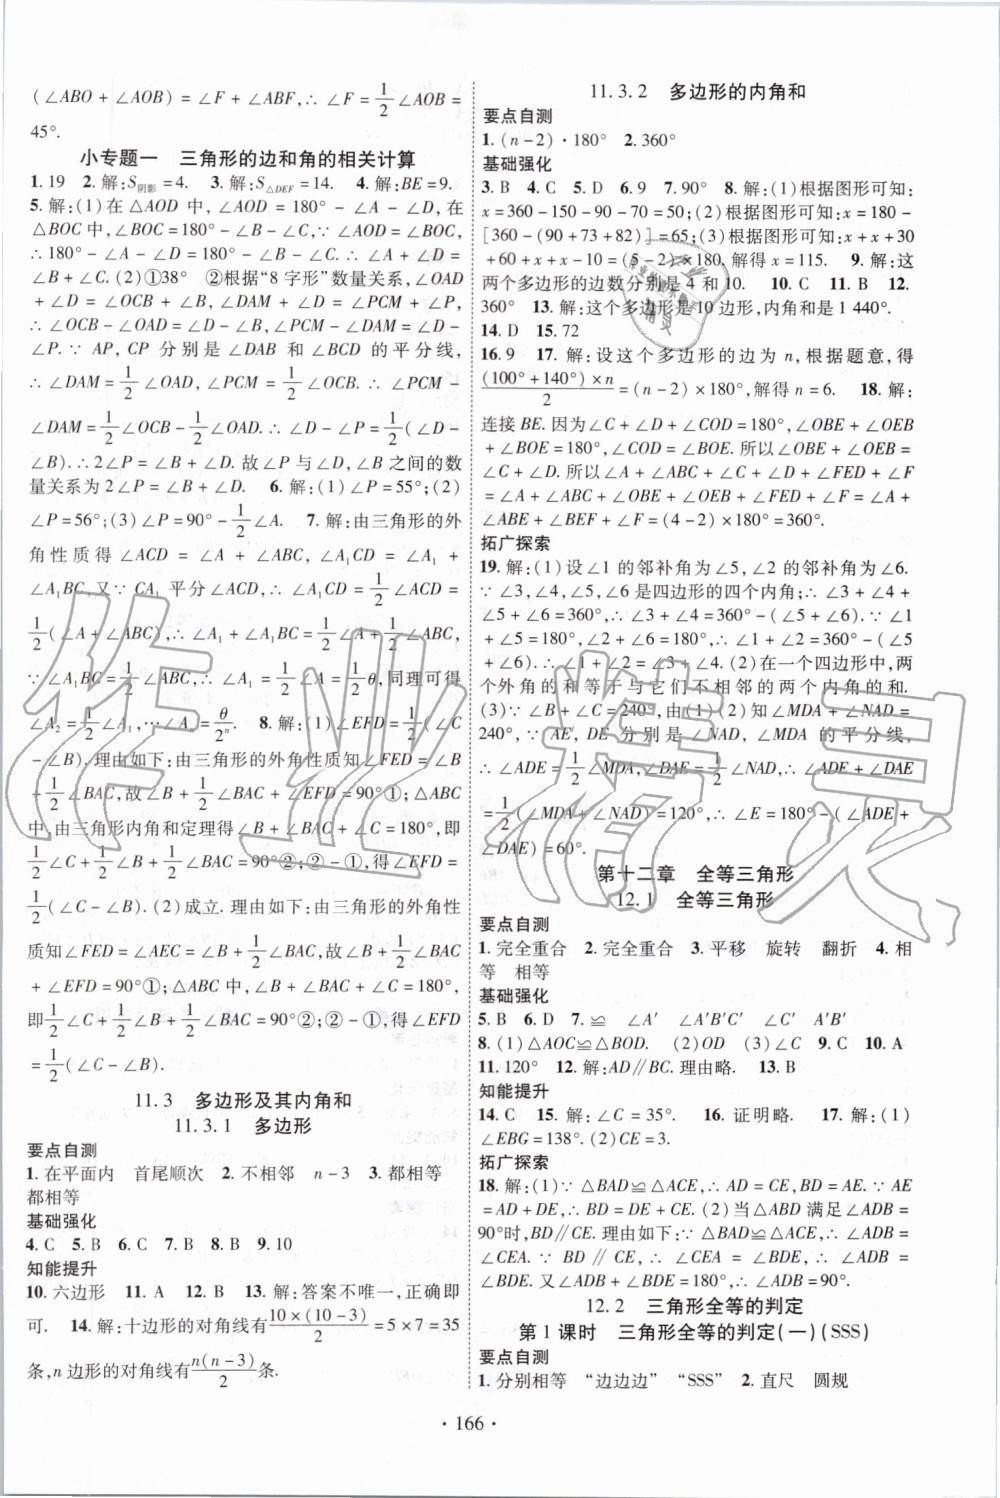 (∠ABO + ∠AOB) = ∠F + ∠ABF,∴ ∠F = 1/2∠AOB =
45°.
小专题一 三角形的边和角的相关计算
1. 19 2. 解:S阴影 = 4. 3. 解:S△DEF = 14. 4. 解:BE = 9.
5. 解:(1)在△AOD 中,∠AOD = 180° - ∠A - ∠D,在
△BOC 中,∠BOC = 180° - ∠B - ∠C. ∵ ∠AOD = ∠BOC,
∴180° - ∠A - ∠D = 180° - ∠B - ∠C,∴ ∠A + ∠D =
∠B + ∠C. (2)①38° ②根据“8 字形”数量关系,∠OAD
+ ∠D = ∠OCB + ∠B,∠DAM + ∠D = ∠PCM + ∠P,
∴ ∠OCB - ∠OAD = ∠D - ∠B,∠PCM - ∠DAM = ∠D -
∠P. ∵ AP,CP 分别是∠DAB 和∠BCD 的平分线,
∴ ∠DAM = 1/2∠OAD,∠PCM = 1/2∠OCB. ∴ ∠PCM -
∠DAM = 1/2∠OCB - 1/2∠OAD. ∴∠D - ∠P = 1/2(∠D -
∠B). ∴2∠P = ∠B + ∠D. 故∠P 与∠D,∠B 之间的数
量关系为 2∠P = ∠B + ∠D. 6. 解:(1)∠P = 55°;(2)
∠P = 56°;(3)∠P = 90° - 1/2∠A. 7. 解:由三角形的外
角性质得 ∠ACD = ∠A + ∠ABC,∠A₁CD = ∠A₁ +
∠A₁BC,又∵ CA₁ 平分∠ACD,∴∠A₁ + ∠A₁BC =
1/2(∠A + ∠ABC),∴ ∠A₁ + ∠A₁BC = 1/2∠A + 1/2∠ABC.
∵ ∠A₁BC = 1/2∠ABC,∴ ∠A₁ = 1/2∠A = 1/2θ,同理可得
∠A₂ = 1/2∠A₁,⋯∠Aₙ = θ/2ⁿ. 8. 解:(1)∠EFD = 1/2(∠C
- ∠B). 理由如下:由三角形的外角性质知∠FED = ∠B
+ 1/2∠BAC,故∠B + 1/2∠BAC + ∠EFD = 90°①;△ABC
中,由三角形内角和定理得∠B + ∠BAC + ∠C = 180°,即
1/2∠C + 1/2∠B + 1/2∠BAC = 90°②;② - ①,得∠EFD =
1/2(∠C - ∠B). (2)成立. 理由如下:由三角形的外角性
质知∠FED = ∠AEC = ∠B + 1/2∠BAC,故∠B + 1/2∠BAC
+ ∠EFD = 90°①;△ABC 中,∠B + ∠BAC + ∠C = 180°,
即1/2∠C + 1/2∠B + 1/2∠BAC = 90°②;② - ①,得∠EFD
= 1/2(∠C - ∠B).
11.3 多边形及其内角和
11.3.1 多边形
要点自测
1. 在平面内 首尾顺次 2. 不相邻 n - 3 3. 都相等
都相等
基础强化
4. C 5. B 6. C 7. B 8. B 9. 10
知能提升
10. 六边形 11. A 12. B 13. 解:答案不唯一,正确即
可. 14. 解:十边形的对角线有10×(10-3)/2 = 5×7 = 35
条,n 边形的对角线有n(n-3)/2条.
11.3.2 多边形的内角和
要点自测
1. (n-2)·180° 2. 360°
基础强化
3. B 4. C 5. D 6. 9 7. 90° 8. 解:(1)根据图形可知:
x = 360 - 150 - 90 - 70 = 50;(2)根据图形可知:x = 180 -
[360 - (90 + 73 + 82)] = 65;(3)根据图形可知:x + x + 30
+ 60 + x + x - 10 = (5 - 2) × 180,解得 x = 115. 9. 解:这
两个多边形的边数分别是 4 和 10. 10. C 11. B 12.
360° 13. 解:这个多边形是 10 边形,内角和是 1 440°.
14. D 15. 72
16. 9 17. 解:设这个多边形的边为 n,根据题意,得
(100° + 140°) × n/2 = (n - 2) × 180°,解得 n = 6. 18. 解:
连接 BE. 因为∠C + ∠D + ∠COD = 180°,∠OBE + ∠OEB
+ ∠BOE = 180°,∠COD = ∠BOE. 所以∠OBE + ∠OEB =
∠C + ∠D. 所以∠A + ∠ABC + ∠C + ∠D + ∠FED + ∠F
= ∠A + ∠ABC + ∠OBE + ∠OEB + ∠FED + ∠F = ∠A +
∠ABE + ∠BEF + ∠F = (4 - 2) × 180° = 360°.
拓广探索
19. 解:(1)设∠1 的邻补角为∠5,∠2 的邻补角为∠6.
∵ ∠3,∠4,∠5,∠6 是四边形的四个内角;∴ ∠3 + ∠4 +
∠5 + ∠6 = 360°,∴ ∠3 + ∠4 = 360° - (∠5 + ∠6). ∵ ∠1
+ ∠5 = 180°,∠2 + ∠6 = 180°,∴ ∠1 + ∠2 = 360° - (∠5
+ ∠6). ∴∠1 + ∠2 = ∠3 + ∠4. (2)在一个四边形中,两
个外角的和等于与它们不相邻的两个内角的和.
(3)∵ ∠B + ∠C = 240°,由(1)(2)知∠MDA + ∠NAD =
240°,∵ AE, DE 分别是∠NAD, ∠MDA 的平分线,
∴ ∠ADE = 1/2∠MDA,∠DAE = 1/2∠NAD,∴ ∠ADE + ∠DAE
= 1/2(∠MDA + ∠NAD) = 120°,∴ ∠E = 180° - (∠ADE +
∠DAE) = 60°.
第十二章 全等三角形
12.1 全等三角形
要点自测
1. 完全重合 2. 完全重合 3. 平移 旋转 翻折 4. 相
等 相等
基础强化
5. B 6. D 7. ≌ ∠A′ ∠A′B′C′ ∠C′ A′B′
8. (1)△AOC≌△BOD. (2)OD (3)∠C 9. C 10. A
11. 120° 12. 解:AD∥BC. 理由略. 13. B
知能提升
14. C 15. 解:∠C = 35°. 16. 证明略. 17. 解:(1)
∠EBG = 138°. (2)CE = 3.
拓广探索
18. 解:(1)∵ △BAD≌△ACE,∴ AD = CE,BD = AE. ∵ AE
= AD + DE,∴ BD = DE + CE. (2)当△ABD 满足∠ADB =
90°时,BD∥CE. 理由如下:∵ △BAD≌△ACE,∴ ∠ADB
= ∠CEA. ∵ BD∥CE,∴ ∠CEA = ∠BDE,∴ ∠ADB =
∠BDE. 又∠ADB + ∠BDE = 180°,∴ ∠ADB = 90°.
12.2 三角形全等的判定
第 1 课时 三角形全等的判定(一)(SSS)
要点自测
1. 分别相等 “边边边” “SSS” 2. 直尺 圆规
· 166 ·
作业精灵